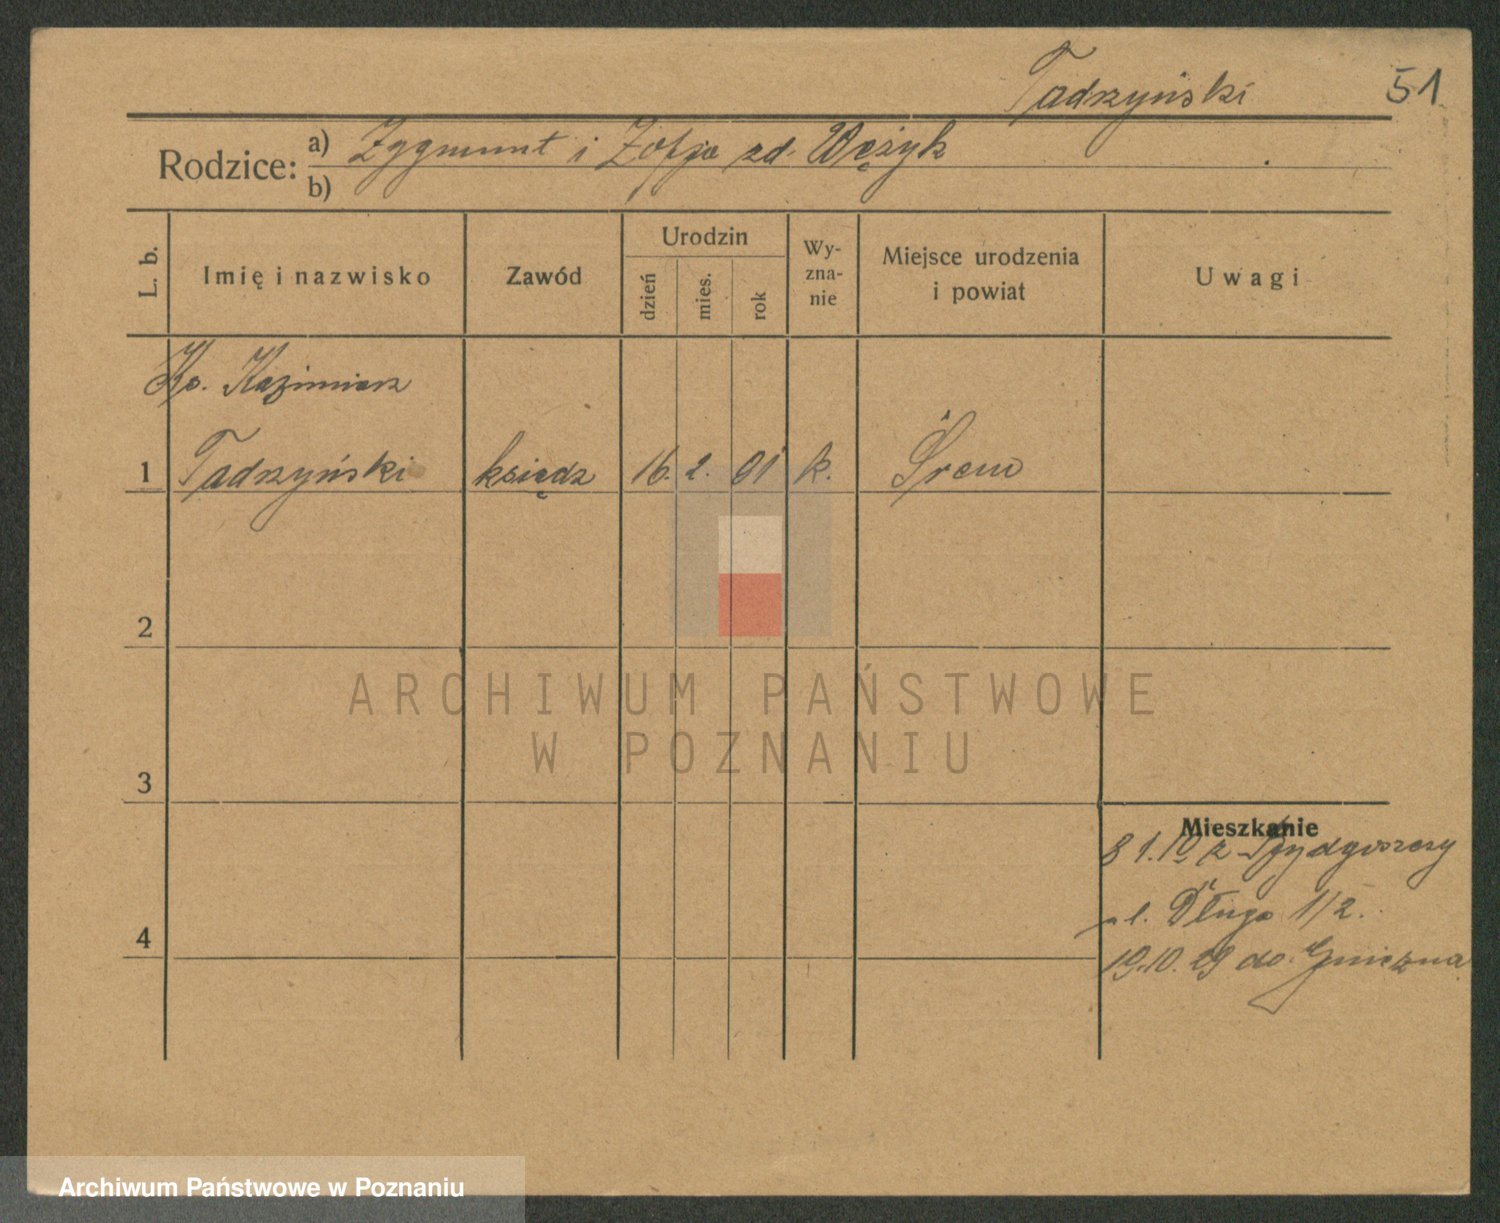 Tadrzyński 51
Rodzice: a) Zygmunt i Zofja zd. Wężyk
b)
L. b.
Imię i nazwisko
Zawód
Urodzin
dzień
mies.
rok
Wy-
zna-
nie
Miejsce urodzenia
i powiat
Uwagi
Ks. Kazimierz
1 Tadrzyński księdz 16. 2. 01 k. Śrem
2
3
4
Mieszkanie
z Bydgoszczy
ul. Długa 1/2.
19.10.29 do Gniezna
ARCHIWUM PAŃSTWOWE
W POZNANIU
Archiwum Państwowe w Poznaniu